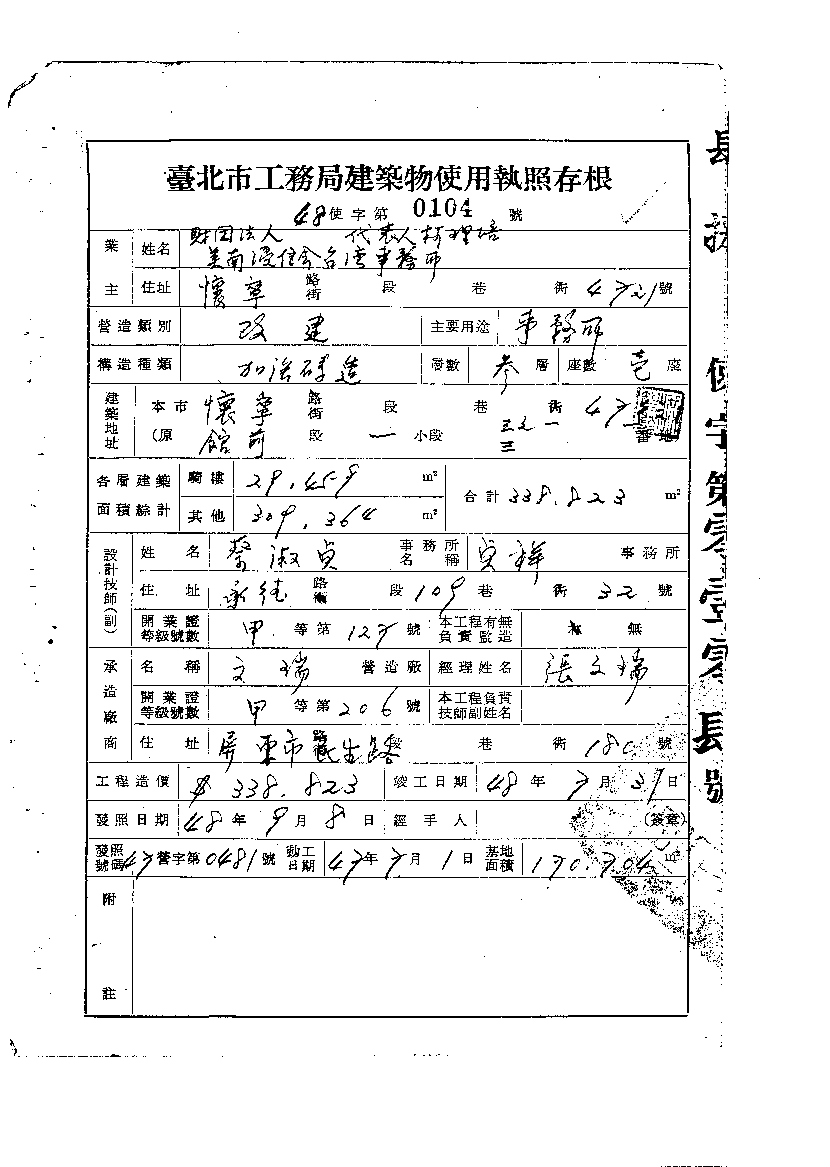 臺北市工務局建築物使用執照存根
48使字第 0104 號
業主 姓名 財団法人 代表人柯理培
美南浸信会台湾事務所
住址 懷寧 路街 段 巷 衖 4721號
營造類別 改建 主要用途 事務所
構造種類 加強磚造 層數 參層 座數 壱座
建築地址 本市 懷寧 路街 段 巷 衖 47
(原 館前 段 一 小段 番地
各層建築面積綜計 騎樓 29.459 m² 合計 338.823 m²
其他 309.364 m²
設計技師(副) 姓名 蔡淑貞 事務所名稱 貞祥 事務所
住址 承德 路街 段 109 巷 衖 32 號
開業證等級號數 甲 等第 127 號 本工程有無負責監造 無
承造廠商 名稱 文瑞 營造廠 經理姓名 張文瑞
開業證等級號數 甲 等第 206 號 本工程負責技師副姓名
住址 屏東市民生路 段 巷 衖 180 號
工程造價 $ 338.823 竣工日期 48 年 7 月 31 日
發照日期 48 年 9 月 8 日 經手人 (簽章)
發照號碼 47 營字第 0481 號 動工日期 47 年 7 月 1 日 基地面積 170.704 m²
附註
使字第零壹零
號